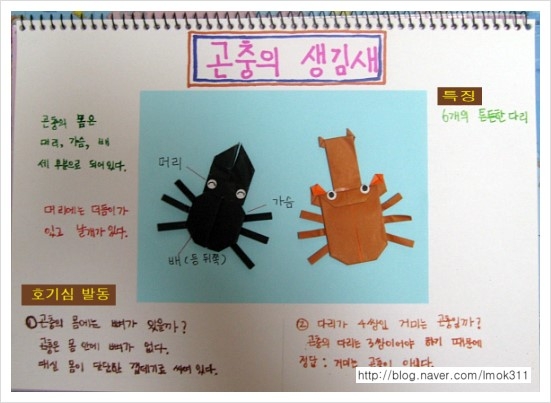 곤충의 생김새
특징
6개의 튼튼한 다리
곤충의 몸은
머리, 가슴, 배
세 부분으로 되어있다.
머리에는 더듬이가
있고 날개가 있다.
머리
가슴
배(등 뒤쪽)
호기심 발동
① 곤충의 몸에는 뼈가 있을까?
곤충은 몸 안에 뼈가 없다.
대신 몸이 단단한 껍데기로 싸여 있다.
② 다리가 4쌍인 거미는 곤충일까?
곤충의 다리는 3쌍이어야 하기 때문에
정답 : 거미는 곤충이 아니다.
http://blog.naver.com/lmok311